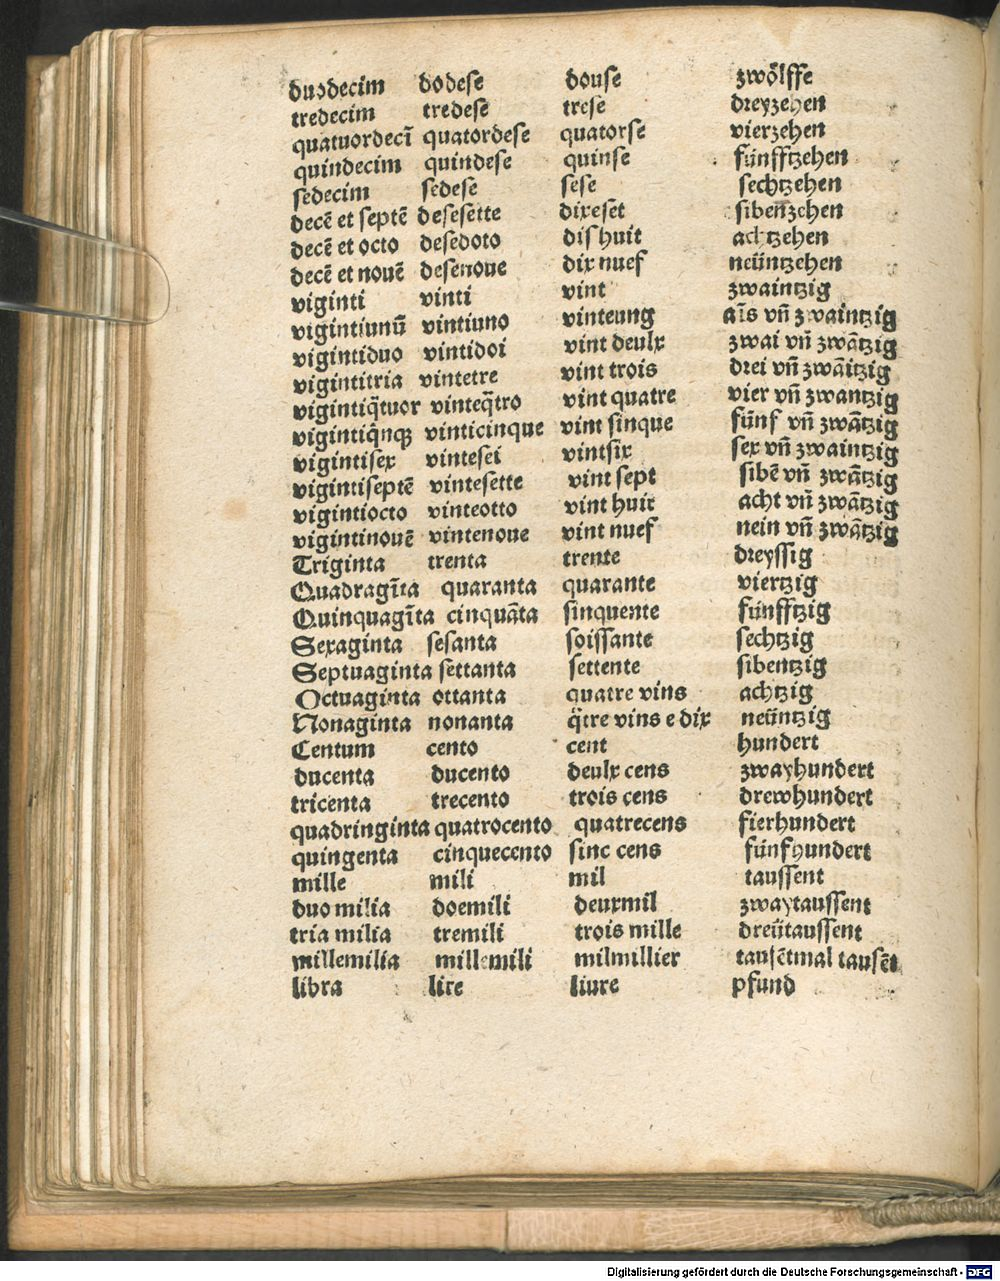 duodecim dodese douse zwölffe
tredecim tredese trese dreyzehen
quatuordecĩ quatordese quatorse vierzehen
quindecim quindese quinse fünfftzehen
sedecim sedese sese sechtzehen
decẽ et septẽ desesette dixeset sibenzehen
decẽ et octo desedoto dishuit achtzehen
decẽ et nouẽ desenoue dix nuef neüntzehen
viginti vinti vint zwaintzig
vigintiunũ vintiuno vinteung aĩs vñ zwaintzig
vigintiduo vintidoi vint deulx zwai vñ zwãtzig
vigintitria vintetre vint trois drei vñ zwãitzig
vigintiq̃tuor vinteq̃tro vint quatre vier vñ zwantzig
vigintiq̃nqȝ vinticinque vint sinque fünf vñ zwãtzig
vigintisex vintesei vintsix sex vñ zwaintzig
vigintiseptẽ vintesette vint sept sibẽ vñ zwãtzig
vigintiocto vinteotto vint huit acht vñ zwãtzig
vigintinouẽ vintenoue vint nuef nein vñ zwãtzig
Triginta trenta trente dreyssig
Quadragĩta quaranta quarante viertzig
Quinquagĩta cinquãta sinquente fünfftzig
Sexaginta sesanta soissante sechtzig
Septuaginta settanta settente sibentzig
Octuaginta ottanta quatre vins achtzig
Nonaginta nonanta q̃tre vins e dix neüntzig
Centum cento cent hundert
ducenta ducento deulx cens zwayhundert
tricenta trecento trois cens drewhundert
quadringinta quatrocento quatrecens fierhundert
quingenta cinquecento sinc cens fünfhundert
mille mili mil taussent
duo milia doemili deuxmil zwaytaussent
tria milia tremili trois mille dreütaussent
millemilia millemili milmillier tausẽtmal tausẽt
libra lire liure pfund
Digitalisierung gefördert durch die Deutsche Forschungsgemeinschaft - DFG